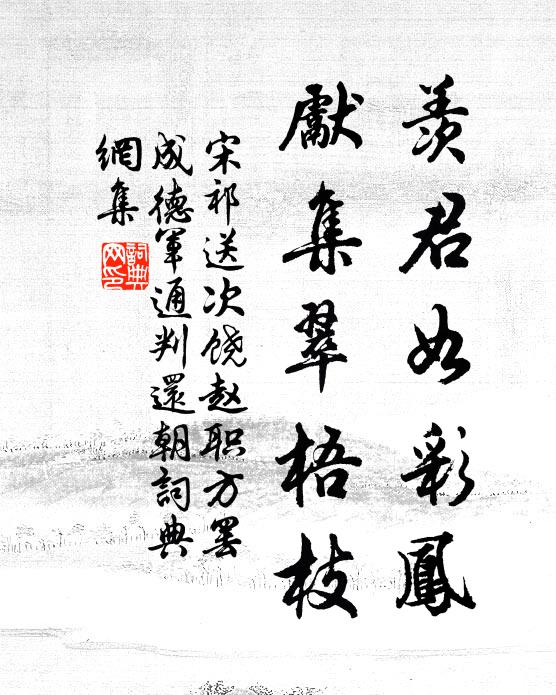 羡君如彩鳳
獻集翠梧枝
宋祁送次饶赵职方罢
成德軍通判還朝詞典
網集
詞典
网印